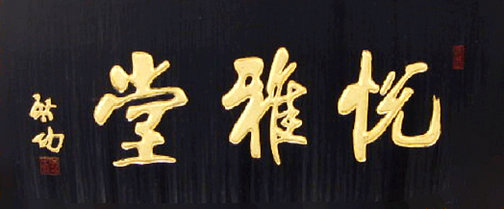 悦雅堂
启功